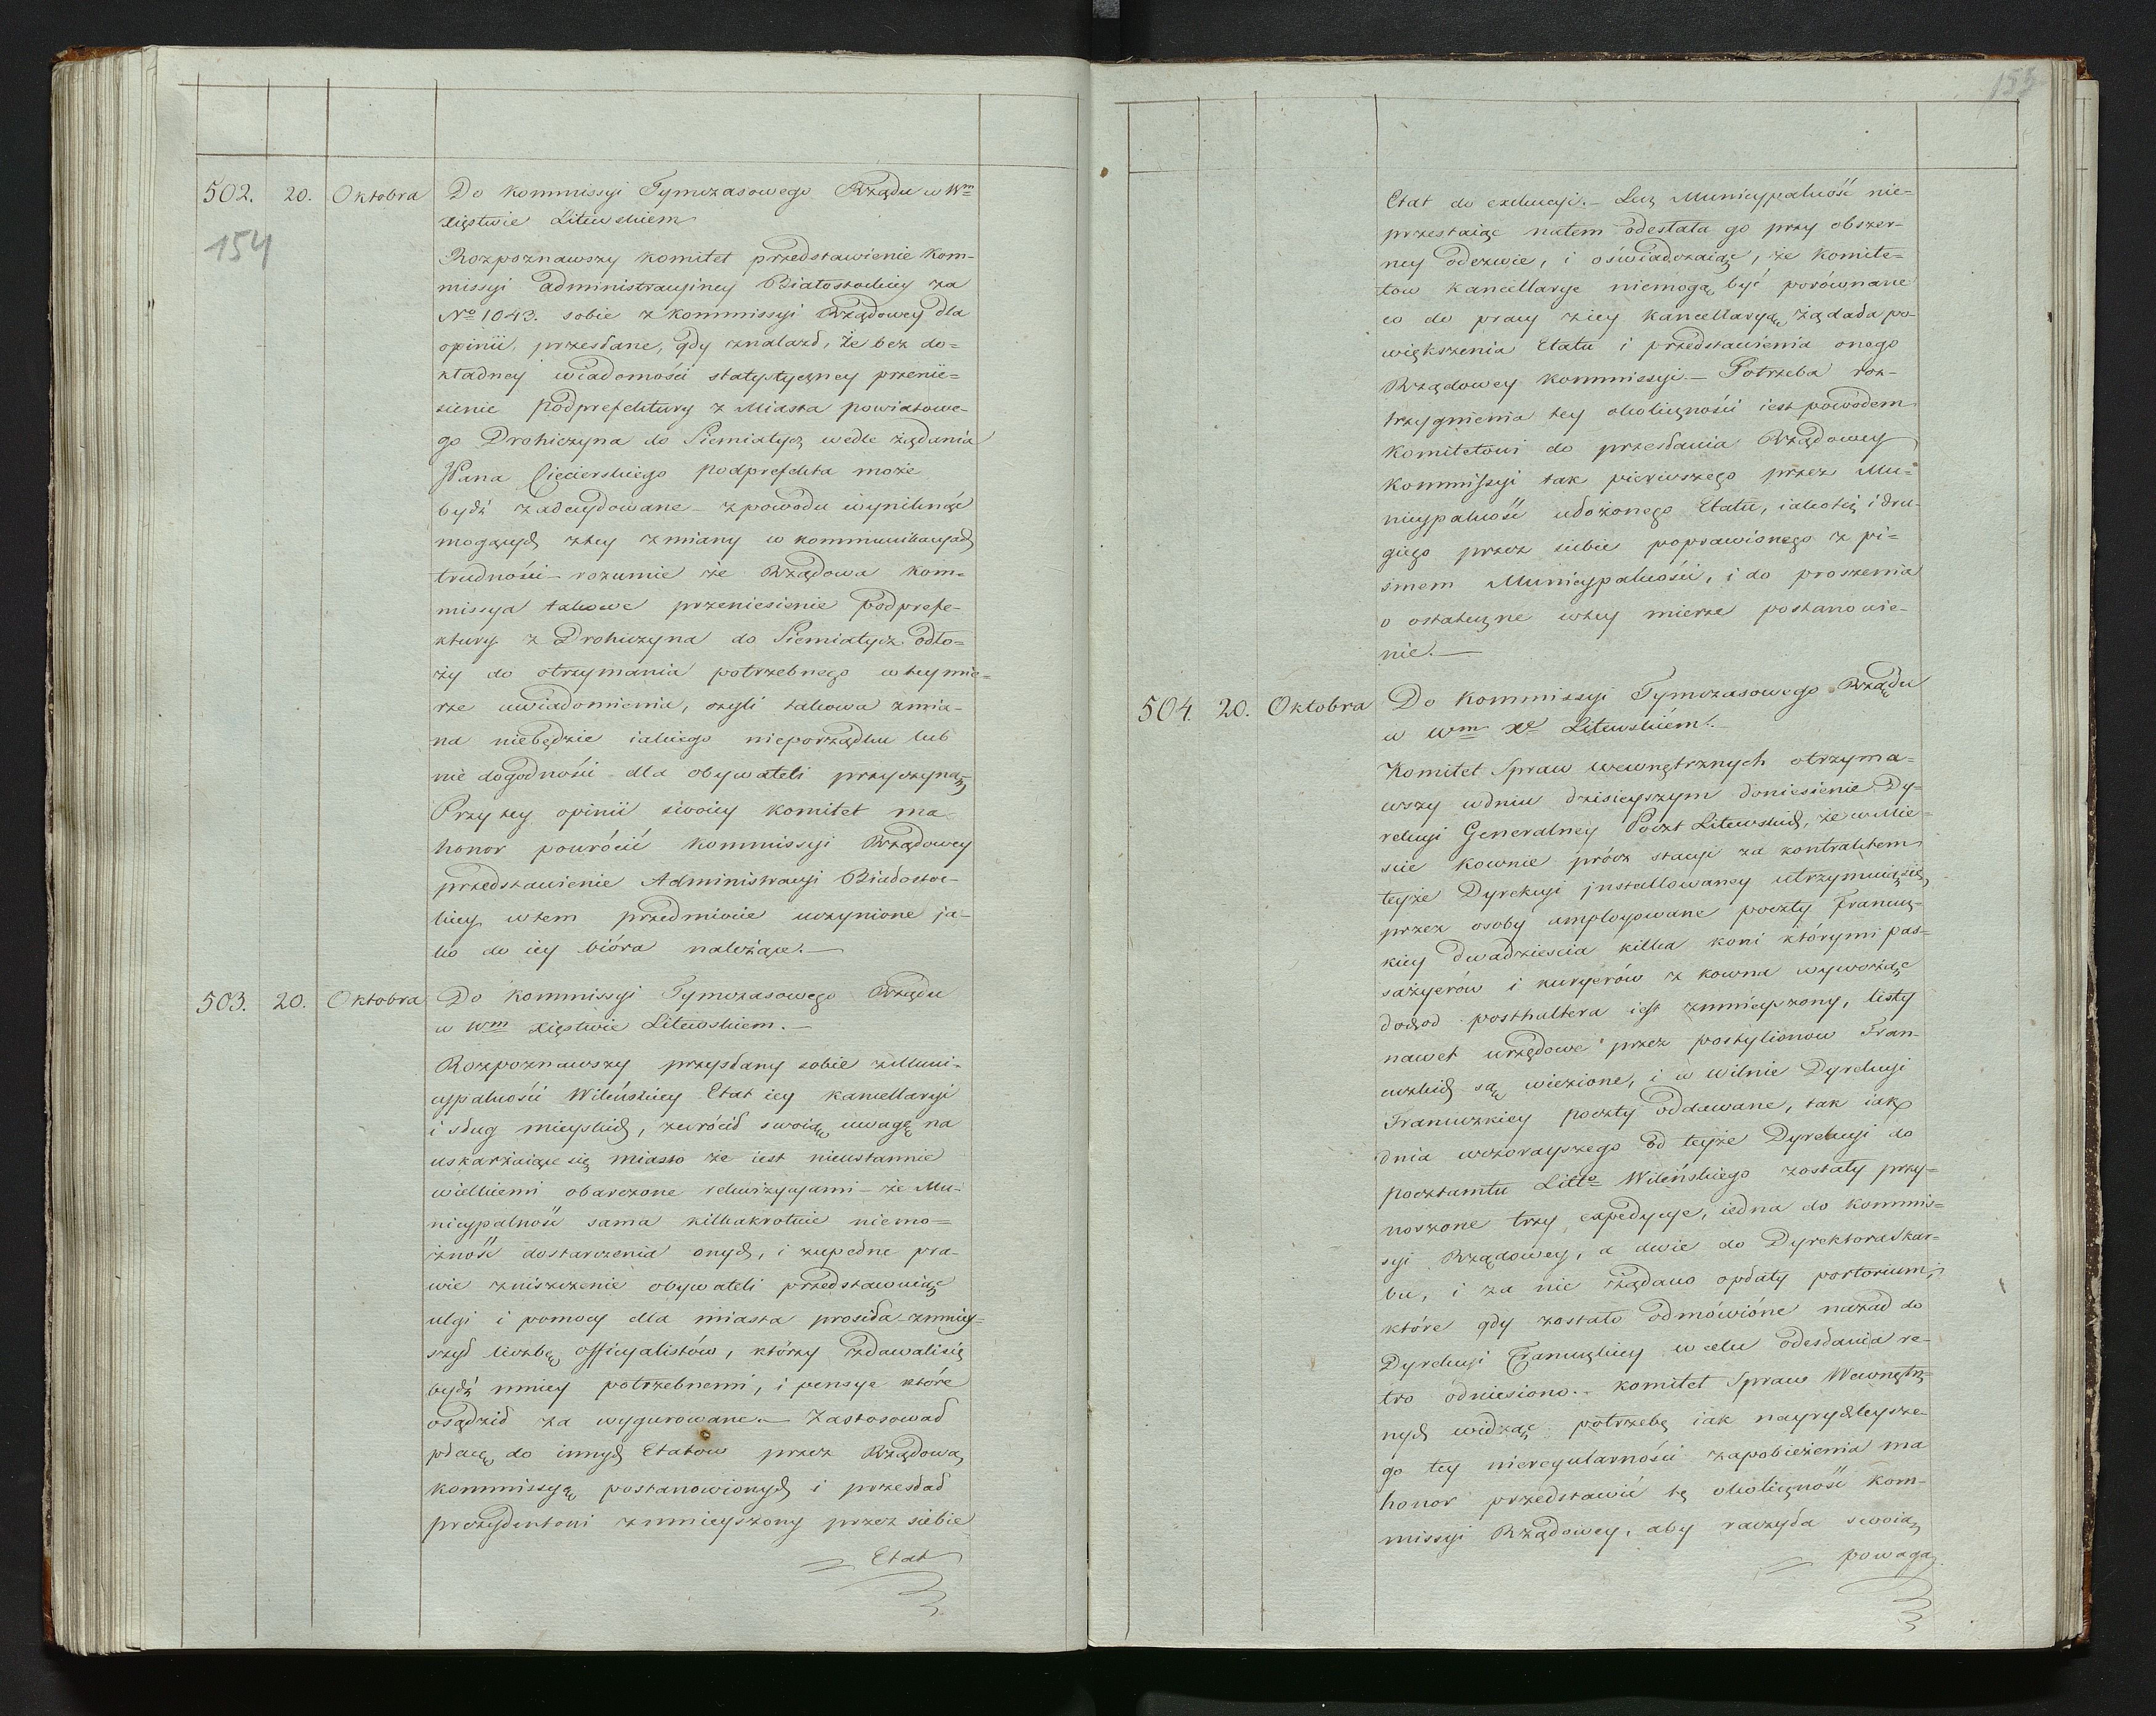 502. 20. Oktobra Do Kommissyi Tymczasowego Rządu w Wm
Xięstwie Litewskiem
154
Rozpoznawszy Komitet przedstawienie Kom-
missyi Administracyiney Białostockiey za
No 1043. sobie z Kommissyi Rządowey dla
opinii, przesłane, gdy znalazł, że bez do=
kładney wiadomości statystyczney przenie=
sienie Podprefektury z Miasta powiatowe-
go Drohiczyna do Siemiatycz wedle żądania
JPana Ciecierskiego Podprefekta może
bydź zadecydowane – z powodu wyniknąć
mogących z tey zmiany w kommunikacyach
trudności – rozumie że Rządowa Kom-
missya takowe przeniesienie podprefe-
ktury z Drohiczyna do Siemiatycz odło=
ży do otrzymania potrzebnego w tey mie=
rze uwiadomienia, czyli takowa zmia-
na niebędzie iakiego nieporządku lub
nie dogodności dla obywateli przyczyną
Przy tey opinii swoiey Komitet ma
honor powrócić Kommissyi Rządowey
przedstawienie Administracyi Białostoc-
kiey w tem przedmiocie uczynione ja-
ko do iey bióra należące. —
503. 20. Oktobra Do Kommissyi Tymczasowego Rządu
w Wm Xięstwie Litewskiem. —
Rozpoznawszy przysłany sobie z Muni-
cypalności Wileńskiey Etat iey kancellaryi
i sług mieyskich, zwrócił swoią uwagę na
uskarżaiące się miasto że iest nieustannie
wielkiemi obarczone rekwizycyami – że Mu-
nicypalność sama kilkakrotnie niemo=
żność dostarczenia onych, i zupełne pra-
wie zniszczenie obywateli przedstawuiąc
ulgi i pomocy dla miasta prosiła – zmniey=
szył liczbę officyalistów, którzy zdawali się
bydź mniey potrzebnemi, i pensye które
osądził za wygurowane. — Zastosował
płacę do innych Etatów przez Rządową
Kommissyą postanowionych i przesłał
prezydentowi zmnieyszony przez siebie
= Etat
153
Etat do exekucyi. – Lecz Municypalność nie-
przestaiąc natem odesłała go przy obszer-
ney odezwie, i oświadczaiąc, że Komite-
tow Kancellarye niemogą być porównane
co do pracy z iey Kancellaryą, żądała po-
większenia Etatu i przedstawienia onego
Rządowey Kommissyi. – Potrzeba roz-
trzygnienia tey okoliczności iest powodem
Komitetowi do przesłania Rządowey
Kommissyi tak pierwszego przez Mu-
nicypalność ułożonego Etatu, iakoteż i dru-
giego przez siebie poprawionego z pi-
smem Municypalności, i do proszenia
o ostateczne w tey mierze postanowie-
nie. —
504. 20. Oktobra Do Kommissyi Tymczasowego Rządu
w Wm Xie Litewskiém. –
Komitet Spraw wewnętrznych otrzyma=
wszy w dniu dzisieyszym doniesienie Dy-
rekcyi Generalney Poczt Litewskich, że w Mie-
ście Kownie prócz stacyi za kontraktem
teyże Dyrekcyi jnstallowaney utrzymuią się
przez osoby employowane poczty Francuz-
kiey dwadzieścia kilka koni którymi pas-
sażyerów i kuryerów z Kowna wywożąc
dochod posthaltera iest zmnieyszony, listy
nawet urzędowe przez postylionow Fran-
cuzkich są wiezione, i w Wilnie Dyrekcyi
Francuzkiey poczty oddawane, tak iak
dnia wczorayszego od teyże Dyrekcyi do
pocztamtu Litto Wileńskiego zostały przy=
noszone trzy expedycye, iedna do Kommis=
syi Rządowey, a dwie do Dyrektora Skar-
bu, i za nie żądano opłaty portorium,
które gdy zostało odmówióne nazad do
Dyrekcyi Francuzkiey w celu odesłania re-
tro odniesiono. – Komitet Spraw Wewnętrz-
nych widząc potrzebę iak nayrychleysze-
go tey nieregularności zapobieżenia ma
honor przedstawić tę okoliczność Kom-
missyi Rządowey, aby raczyła swoią
= powagą